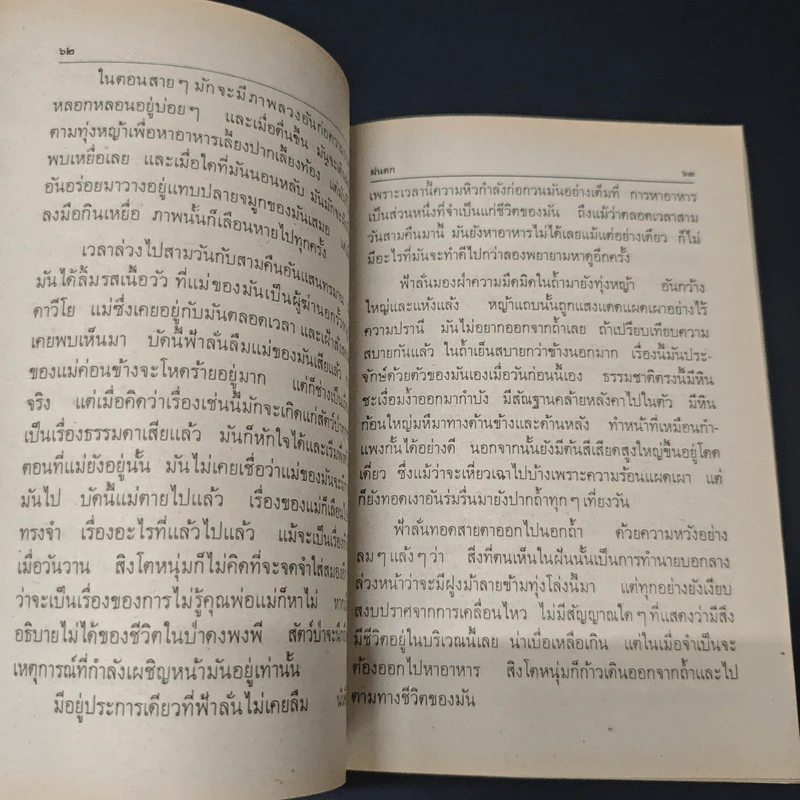 ๖๒
ในตอนสายๆ มักจะมีภาพลวงอันก่อความ
หลอกหลอนอยู่บ่อยๆ และเมื่อตื่นขึ้น มันจะเดิน
ตามทุ่งหญ้าเพื่อหาอาหารเลี้ยงปากเลี้ยงท้อง แต่
พบเหยื่อเลย และเมื่อใดที่มันนอนหลับ มันมักจะ
อันอร่อยมาวางอยู่แทบปลายจมูกของมันเสมอ
ลงมือกินเหยื่อ ภาพนั้นก็เลือนหายไปทุกครั้ง
เวลาล่วงไปสามวันกับสามคืนอันแสนทรมาน
มันได้ลิ้มรสเนื้อวัว ที่แม่ของมันเป็นผู้ฆ่านอกรั้ว
ดาวีโย แม่ซึ่งเคยอยู่กับมันตลอดเวลา และเฝ้า
เคยพบเห็นมา บัดนี้ฟ้าลั่นลืมแม่ของมันเสียแล้ว
ของแม่ค่อนข้างจะโหดร้ายอยู่มาก แต่ก็ช่างเป็น
จริง แต่เมื่อคิดว่าเรื่องเช่นนี้มักจะเกิดแก่สัตว์ป่า
เป็นเรื่องธรรมดาเสียแล้ว มันก็หักใจได้และเริ่ม
ตอนที่แม่ยังอยู่นั้น มันไม่เคยเชื่อว่าแม่ของมันจะ
มันไป บัดนี้แม่ตายไปแล้ว เรื่องของแม่ก็เลือนไป
ทรงจำ เรื่องอะไรที่แล้วไปแล้ว แม้จะเป็นเรื่อง
เมื่อวันวาน สิงโตหนุ่มก็ไม่คิดที่จะจดจำใส่สมอง
ว่าจะเป็นเรื่องของการไม่รู้คุณพ่อแม่ก็หาไม่
อธิบายไม่ได้ของชีวิตในป่าดงพงพี สัตว์ป่าจะนึก
เหตุการณ์ที่กำลังเผชิญหน้ามันอยู่เท่านั้น
มีอยู่ประการเดียวที่ฟ้าลั่นไม่เคยลืม
ฝนตก ๖๓
เพราะเวลานี้ความหิวกำลังก่อกวนมันอย่างเต็มที่ การหาอาหาร
เป็นส่วนหนึ่งที่จำเป็นแก่ชีวิตของมัน ถึงแม้ว่าตลอดเวลาสาม
วันสามคืนมานี้ มันยังหาอาหารไม่ได้เลยแม้แต่อย่างเดียว ก็ไม่
มีอะไรที่มันจะทำดีไปกว่าลองพยายามหาดูอีกครั้ง
ฟ้าลั่นมองฝ่าความมืดมิดในถ้ำมายังทุ่งหญ้า อันกว้าง
ใหญ่และแห้งแล้ง หญ้าแถบนั้นถูกแสงแดดแผดเผาอย่างไร้
ความปรานี มันไม่อยากออกจากถ้ำเลย ถ้าเปรียบเทียบความ
สบายกันแล้ว ในถ้ำเย็นสบายกว่าข้างนอกมาก เรื่องนี้มันประ-
จักษ์ด้วยตัวของมันเองเมื่อวันก่อนนี้เอง ธรรมชาติตรงนี้มีหิน
ชะเงื่อมง้ำออกมากำบัง มีสัณฐานคล้ายหลังคาไปในตัว มีหิน
ก้อนใหญ่มหึมาทางด้านข้างและด้านหลัง ทำหน้าที่เหมือนกำ-
แพงกั้นได้อย่างดี นอกจากนั้นยังมีต้นสีเสียดสูงใหญ่ขึ้นอยู่โดด
เดี่ยว ซึ่งแม้ว่าจะเหี่ยวเฉาไปบ้างเพราะความร้อนแผดเผา แต่
ก็ยังทอดเงาอันร่มรื่นมายังปากถ้ำทุกๆ เที่ยงวัน
ฟ้าลั่นทอดสายตาออกไปนอกถ้ำ ด้วยความหวังอย่าง
ลมๆ แล้งๆ ว่า สิ่งที่ตนเห็นในฝันนั้นเป็นการทำนายบอกลาง
ล่วงหน้าว่าจะมีฝูงม้าลายข้ามทุ่งโล่งนี้มา แต่ทุกอย่างยังเงียบ
สงบปราศจากการเคลื่อนไหว ไม่มีสัญญาณใดๆ ที่แสดงว่ามีสิ่ง
มีชีวิตอยู่ในบริเวณนี้เลย น่าเบื่อเหลือเกิน แต่ในเมื่อจำเป็นจะ
ต้องออกไปหาอาหาร สิงโตหนุ่มก็ก้าวเดินออกจากถ้ำและไป
ตามทางชีวิตของมัน